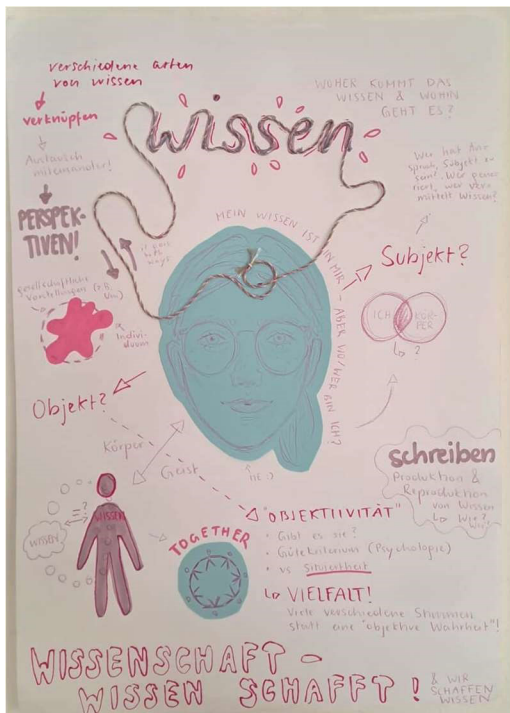 verschiedene arten
von wissen
verknüpfen
Austausch
miteinander!
PERSPEK-
TIVEN!
it goes
both
ways
gesellschaftliche
Vorstellungen (z.B.
Uni)
Indivi-
duum
wissen
WOHER KOMMT DAS
WISSEN & WOHIN
GEHT ES?
Wer hat An-
spruch, Subjekt zu
sein? Wer
wer ver-
mittelt Wissen?
MEIN WISSEN IST IN MIR – ABER WO/WER BIN ICH?
Subjekt?
ICH
KÖR-
PER
?
Objekt?
Körper
Geist
schreiben
Produktion &
Reproduktion
von Wissen
Wie?
= ?
WISSEN
WISSEN
TOGETHER
"OBJEKTIVITÄT"
• Gibt es sie?
• Gütekriterium (Psychologie)
• vs Situiertheit
VIELFALT!
Viele verschiedene Stimmen
statt eine "objektive Wahrheit"!
WISSENSCHAFT –
WISSEN SCHAFFT!
& WIR
SCHAFFEN
WISSEN